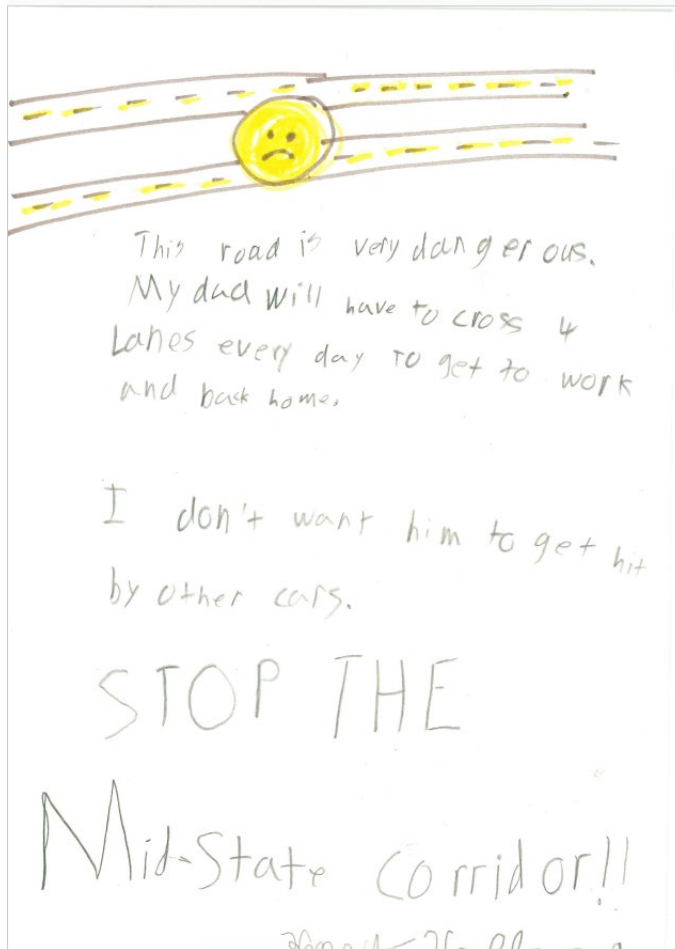 This road is very dangerous.
My dad will have to cross 4
Lanes every day to get to work
and back home.
I don't want him to get hit
by other cars.
STOP THE
Mid-State corridor!!